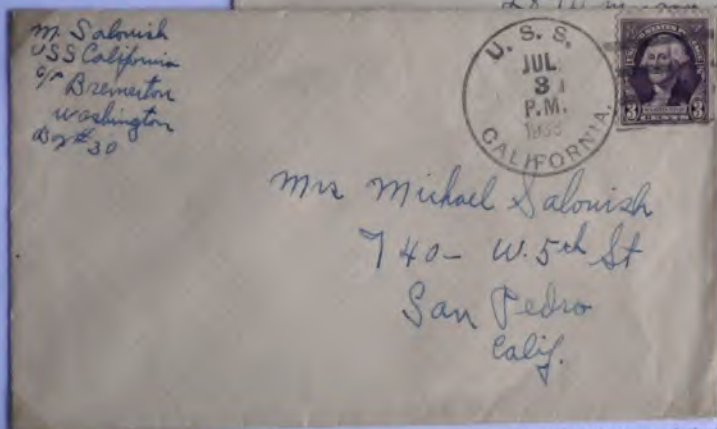 M. Salovish
USS California
c/o Bremerton
Washington
Box #30
U. S. S.
JUL
3
P.M.
CALIFORNIA.
3
3
Mrs Michael Salovish
740- W. 5th St
San Pedro
Calif.